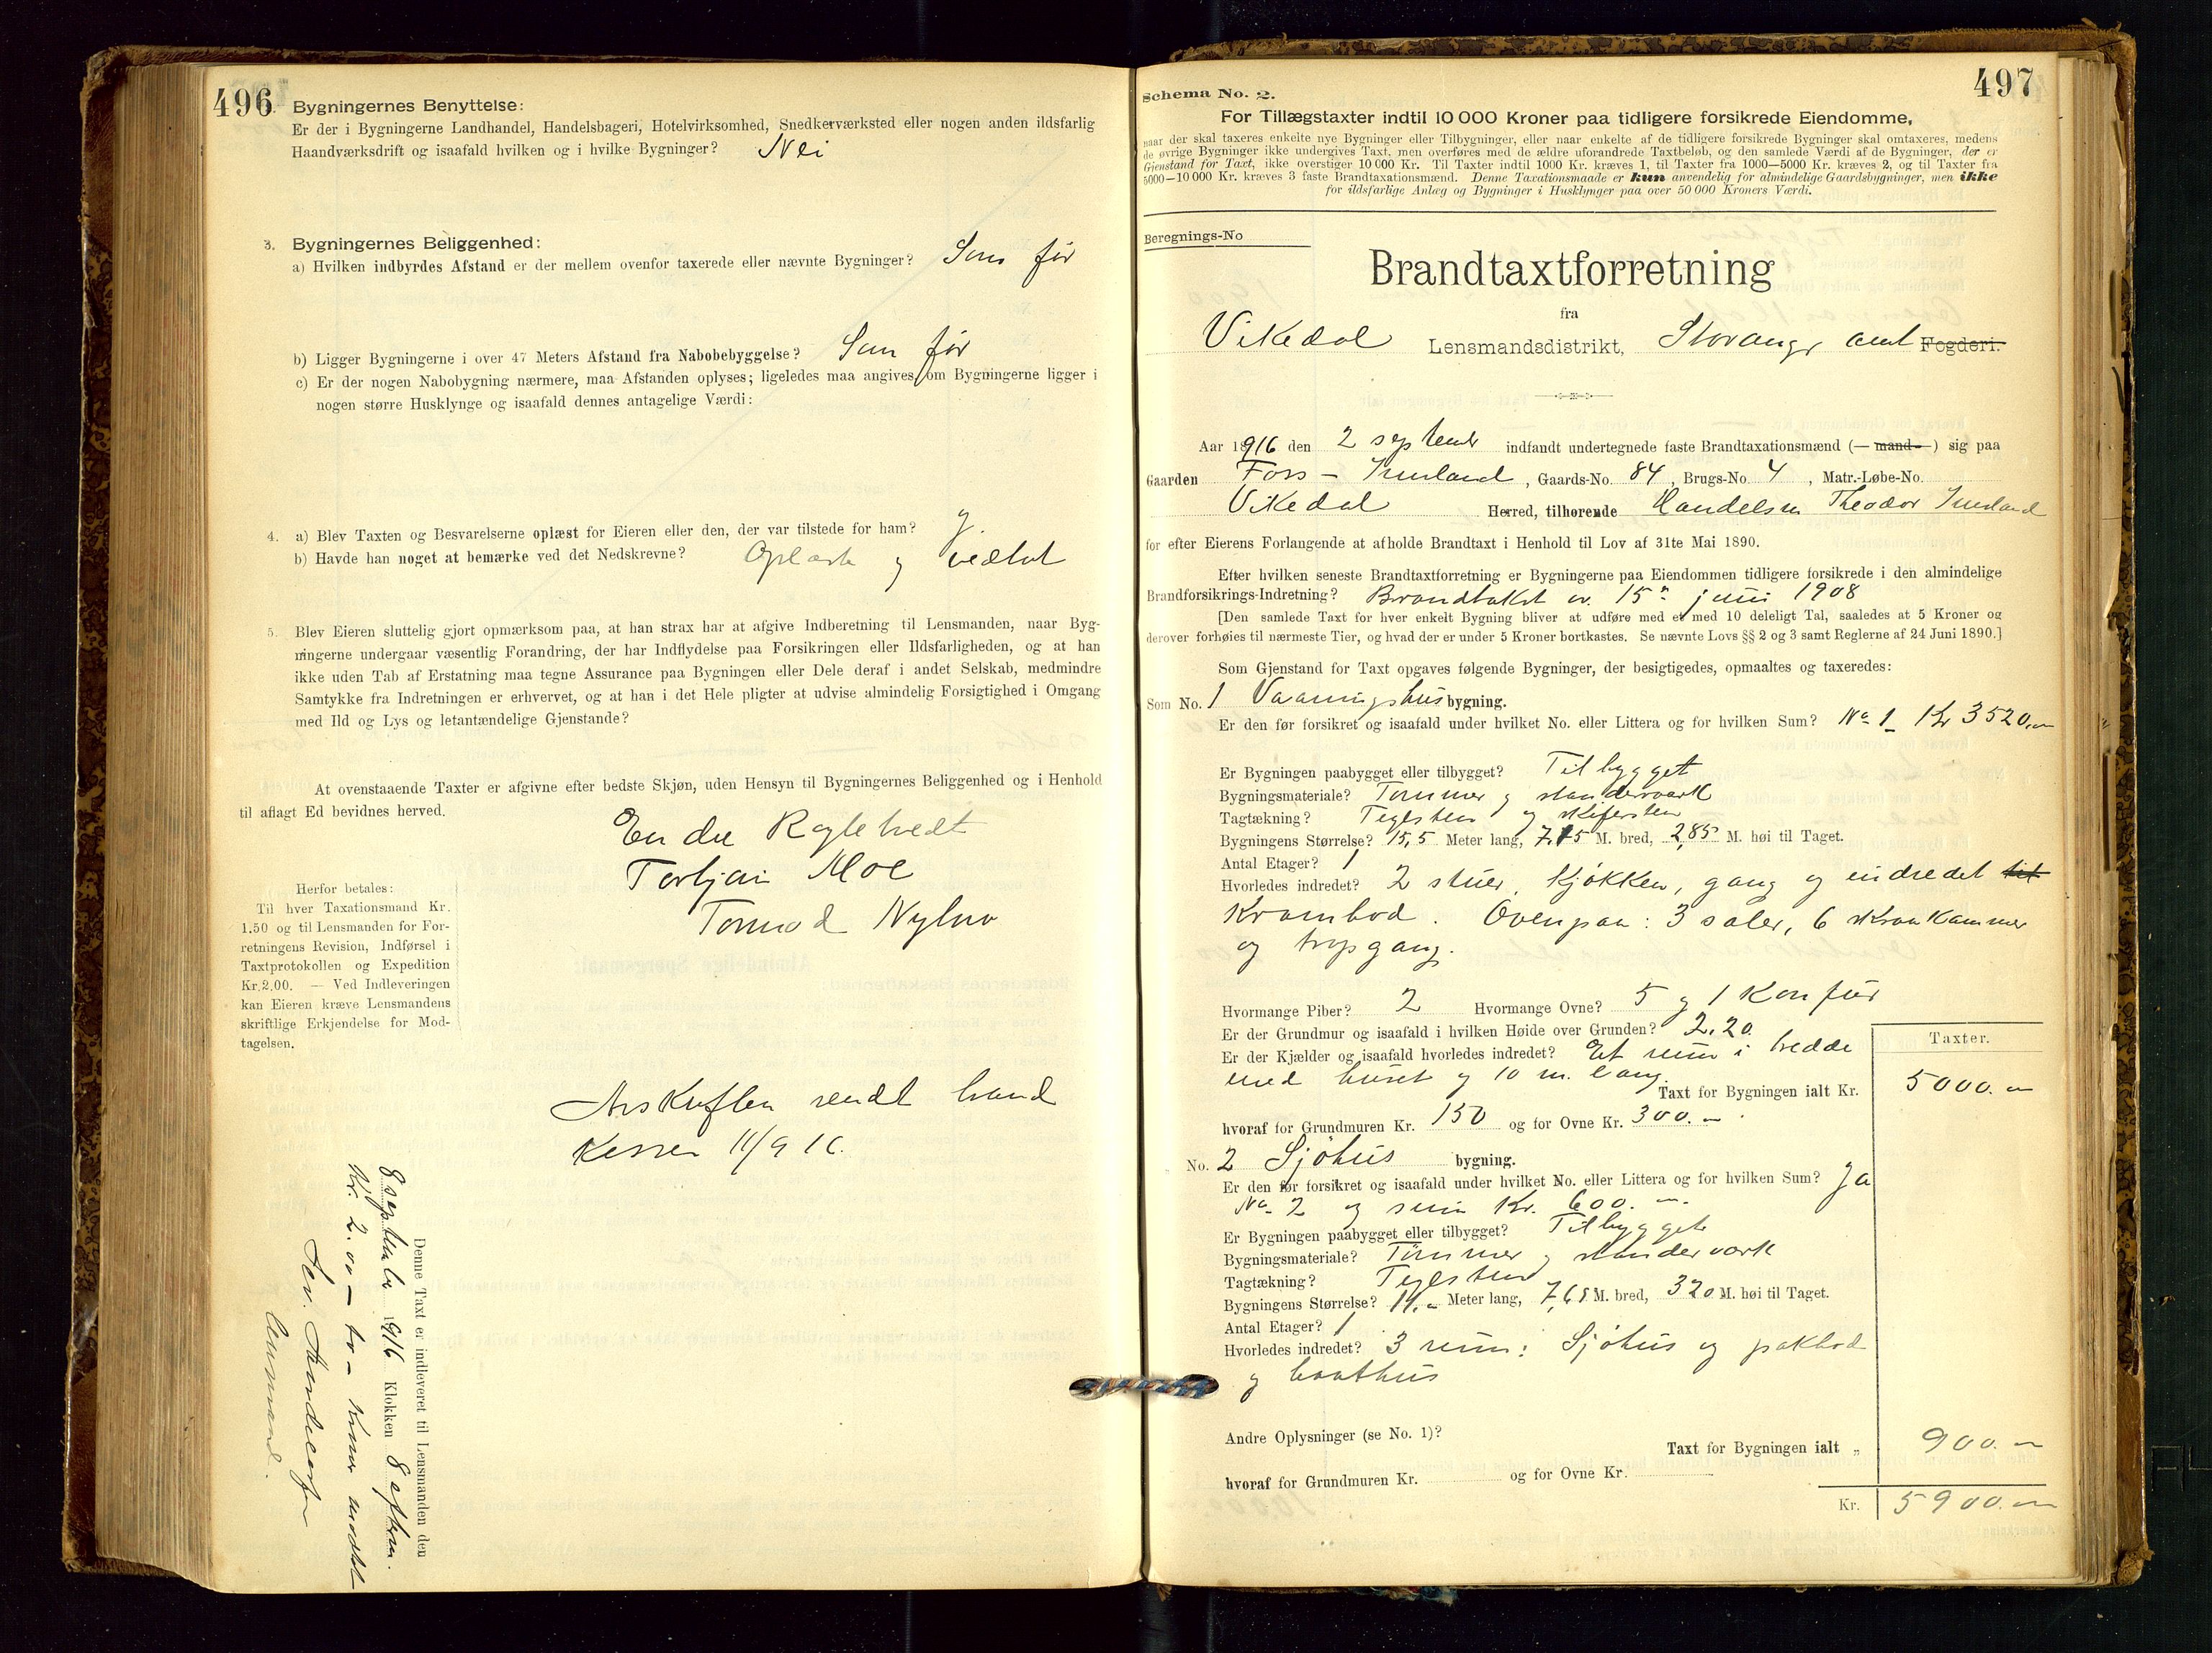 496
2. Bygningernes Benyttelse:
Er der i Bygningerne Landhandel, Handelsbageri, Hotelvirksomhed, Snedkerværksted eller nogen anden ildsfarlig
Haandværksdrift og isaafald hvilken og i hvilke Bygninger? Nei
3. Bygningernes Beliggenhed:
a) Hvilken indbyrdes Afstand er der mellem ovenfor taxerede eller nævnte Bygninger? Som før
b) Ligger Bygningerne i over 47 Meters Afstand fra Nabobebyggelse? Som før
c) Er der nogen Nabobygning nærmere, maa Afstanden oplyses; ligeledes maa angives, om Bygningerne ligger i
nogen større Husklynge og isaafald dennes antagelige Værdi:
4. a) Blev Taxten og Besvarelserne oplæst for Eieren eller den, der var tilstede for ham?
b) Havde han noget at bemærke ved det Nedskrevne? Oplæst og vedtat
5. Blev Eieren sluttelig gjort opmærksom paa, at han strax har at afgive Indberetning til Lensmanden, naar Byg-
ningerne undergaar væsentlig Forandring, der har Indflydelse paa Forsikringen eller Ildsfarligheden, og at han
ikke uden Tab af Erstatning maa tegne Assurance paa Bygningen eller Dele deraf i andet Selskab, medmindre
Samtykke fra Indretningen er erhvervet, og at han i det Hele pligter at udvise almindelig Forsigtighed i Omgang
med Ild og Lys og letantændelige Gjenstande?
At ovenstaaende Taxter er afgivne efter bedste Skjøn, uden Hensyn til Bygningernes Beliggenhed og i Henhold
til aflagt Ed bevidnes herved.
Endre
Torbjørn Moe
Tormod
Herfor betales:
Til hver Taxationsmand Kr.
1.50 og til Lensmanden for For-
retningens Revision, Indførsel i
Taxtprotokollen og Expedition
Kr.2.00. — Ved Indleveringen
kan Eieren kræve Lensmandens
skriftlige Erkjendelse for Mod-
tagelsen.
Avskriften sendt brand
kassen 11/9 16.
Denne Taxt er indleveret til Lensmanden den
8 september 1916 Klokken 8 efterm.
Kr. 2.00 — to — kroner modtat
lensmand.
497
Schema No. 2.
For Tillægstaxter indtil 10 000 Kroner paa tidligere forsikrede Eiendomme,
naar der skal taxeres enkelte nye Bygninger eller Tilbygninger, eller naar enkelte af de tidligere forsikrede Bygninger skal omtaxeres, medens
de øvrige Bygninger ikke undergives Taxt, men overføres med de ældre uforandrede Taxtbeløb, og den samlede Værdi af de Bygninger, der er
Gjenstand for Taxt, ikke overstiger 10 000 Kr. Til Taxter indtil 1000 Kr. kræves 1, til Taxter fra 1000—5000 Kr. kræves 2, og til Taxter fra
5000—10 000 Kr. kræves 3 faste Brandtaxationsmænd. Denne Taxationsmaade er kun anvendelig for almindelige Gaardsbygninger, men ikke
for ildsfarlige Anlæg og Bygninger i Husklynger paa over 50 000 Kroners Værdi.
Beregnings-No
Brandtaxtforretning
fra
Vikedal Lensmandsdistrikt, Stavanger amt Fogderi.
Aar 1916 den 2 september indfandt undertegnede faste Brandtaxationsmænd (— mand —) sig paa
Gaarden Fors - Imsland, Gaards-No. 84, Brugs-No. 4, Matr.-Løbe-No.
Vikedal Herred, tilhørende Handelsm Theodor Imsland
for efter Eierens Forlangende at afholde Brandtaxt i Henhold til Lov af 31te Mai 1890.
Efter hvilken seneste Brandtaxtforretning er Bygningerne paa Eiendommen tidligere forsikrede i den almindelige
Brandforsikrings-Indretning? Brandtakst av 15de juni 1908
[Den samlede Taxt for hver enkelt Bygning bliver at udføre med et med 10 deleligt Tal, saaledes at 5 Kroner og
derover forhøies til nærmeste Tier, og hvad der er under 5 Kroner bortkastes. Se nævnte Lovs §§ 2 og 3 samt Reglerne af 24 Juni 1890.]
Som Gjenstand for Taxt opgaves følgende Bygninger, der besigtigedes, opmaaltes og taxeredes:
Som No. 1 Vaaningshus bygning.
Er den før forsikret og isaafald under hvilket No. eller Littera og for hvilken Sum? No 1 Kr 3520.-
Er Bygningen paabygget eller tilbygget? Tilbygget
Bygningsmateriale? Tømmer og standerværk
Tagtækning? Teglsten og skifersten
Bygningens Størrelse? 15,5 Meter lang, 7.15 M. bred, 2,85 M. høi til Taget.
Antal Etager? 1
Hvorledes indredet? 2 stuer, kjøkken, gang og indredet til
Krambod. Ovenpaa: 3 saler, 6 skraakammer
og trapgang.
Hvormange Piber? 2 Hvormange Ovne? 5 og 1 Komfur
Er der Grundmur og isaafald i hvilken Høide over Grunden? 2.20
Er der Kjælder og isaafald hvorledes indredet? Et rum i bredde
med huset og 10 m. lang
Taxter.
Taxt for Bygningen ialt Kr. 5000.-
hvoraf for Grundmuren Kr. 150 og for Ovne Kr. 300.-
No. 2 Sjøhus bygning.
Er den før forsikret og isaafald under hvilket No. eller Littera og for hvilken Sum? Ja
No 2 og sum Kr. 600.-
Er Bygningen paabygget eller tilbygget? Tilbygget
Bygningsmateriale? Tømmer og standerværk
Tagtækning? Teglsten
Bygningens Størrelse? 14.- Meter lang, 7,65 M. bred, 320 M. høi til Taget.
Antal Etager? 1
Hvorledes indredet? 3 rum: Sjøhus og pakbod
og baathus
Andre Oplysninger (se No. 1)?
Taxt for Bygningen ialt „ 900.-
hvoraf for Grundmuren Kr. og for Ovne Kr.
Kr. 5900.-